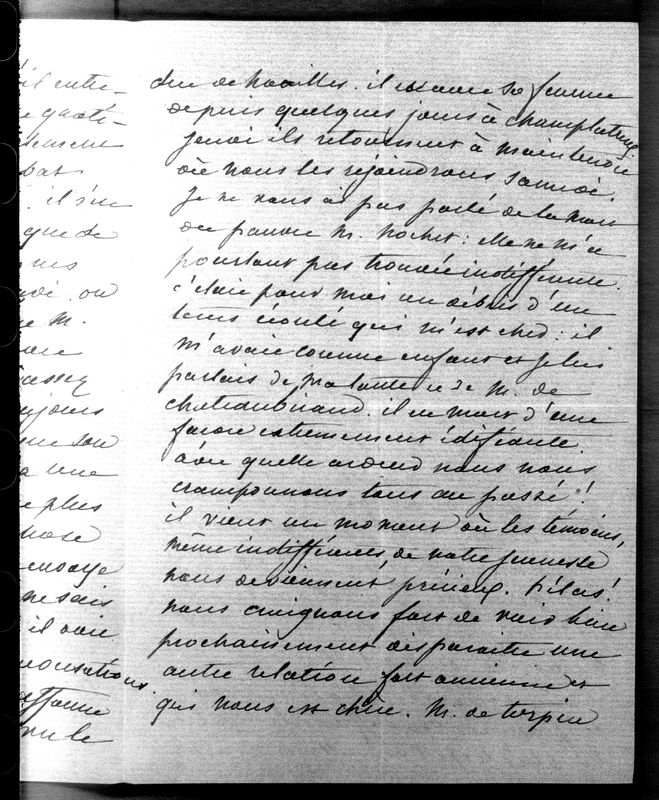 duc de Noailles. il est avec sa femme
depuis quelques jours à champlatreux
jeudi ils retournent à maintenon
où nous les rejoindrons samedi.
Je ne vous ai pas parlé de la mort
du pauvre M. Rochet : elle ne m'a
pourtant pas trouvée indifférente.
c'était pour moi un débris d'un
tems écoulé qui m'est cher : il
m'avait connue enfant et je lui
parlais de ma tante et de M. de
chateaubriand. il est mort d'une
façon extrêmement édifiante.
avec quelle ardeur nous nous
cramponnons tous au passé !
il vient un moment où les témoins,
même indifférents, de notre jeunesse
nous deviennent précieux. hélas !
nous craignons fort de voir bien
prochainement disparaitre une
autre relation fort ancienne et
qui nous est chère. M. de turpin
il entre-
quoti-
bat
il s'en
que de
ou
M.
assez
toujours
son
une
plus
chose
envoye
ne sais
il voit
affame